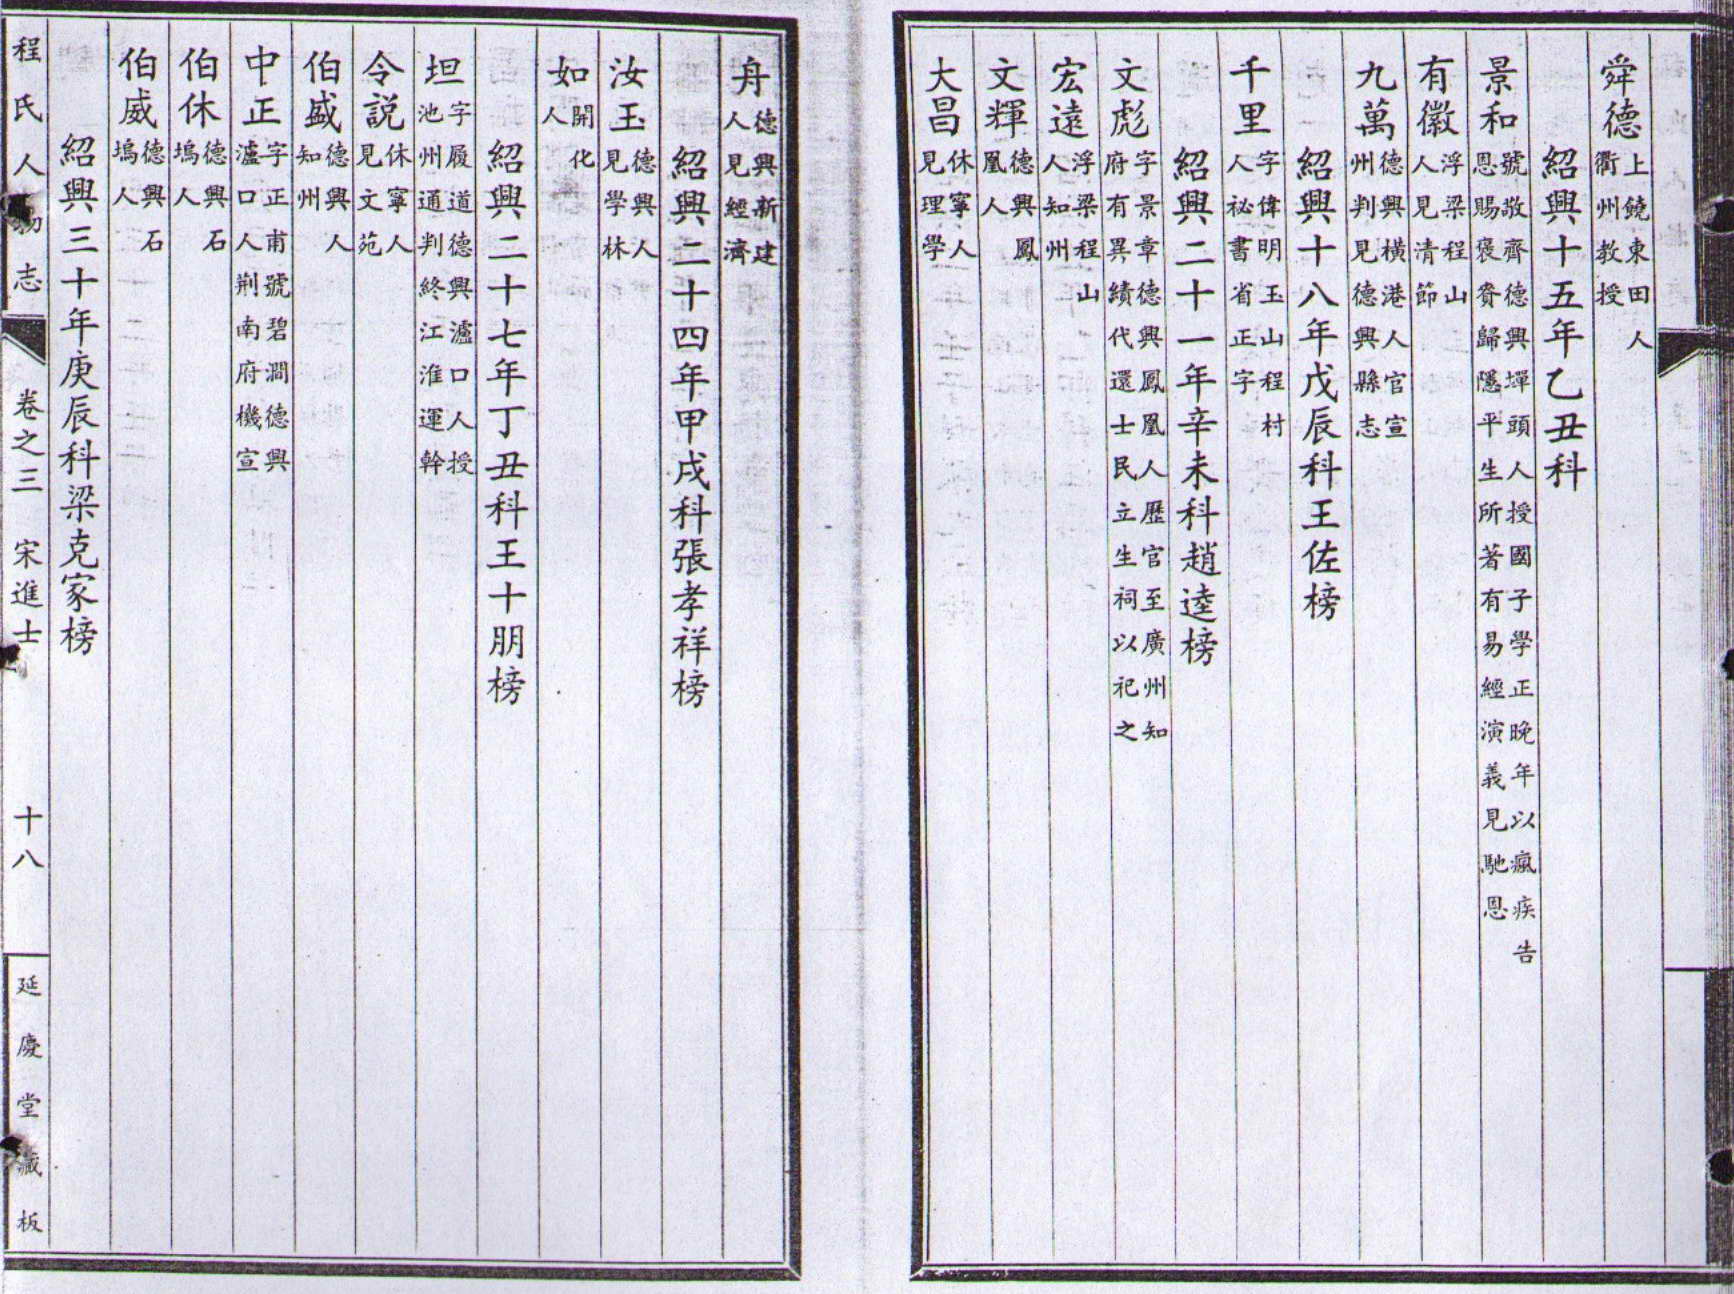 舜德 上饒東田人衢州教授
紹興十五年乙丑科
景和 號敬齊德興墠頭人授國子學正晚年以瘋疾告恩賜褒賚歸隱平生所著有易經演義見馳恩
有徽 浮梁程山人見清節
九萬 德興橫港人官宣州判見德興縣志
紹興十八年戊辰科王佐榜
千里 字偉明玉山程村人祕書省正字
紹興二十一年辛未科趙逵榜
文彪 字景章德興鳳凰人歷官至廣州知府有異績代還士民立生祠以祀之
宏遠 浮梁程山人知州
文輝 德興鳳凰人
大昌 休寧人見理學
舟 德興新建人見經濟
紹興二十四年甲戌科張孝祥榜
汝玉 德興人見學林
如 開化人
紹興二十七年丁丑科王十朋榜
坦 字履道德興瀘口人授池州通判終江淮運幹
令説 休寧人見文苑
伯盛 德興人知州
中正 字正甫號碧澗德興瀘口人荆南府機宣
伯休 德興石塢人
伯威 德興石塢人
紹興三十年庚辰科梁克家榜
程氏人物志 卷之三 宋進士 十八 延慶堂藏板